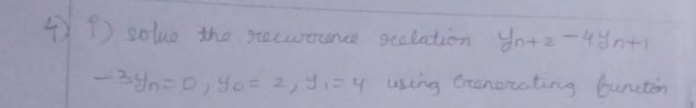 4) i) solve the recurrence relation yn+2 -4yn+1
-3yn=0, y0= 2, y1=4 using Generating function